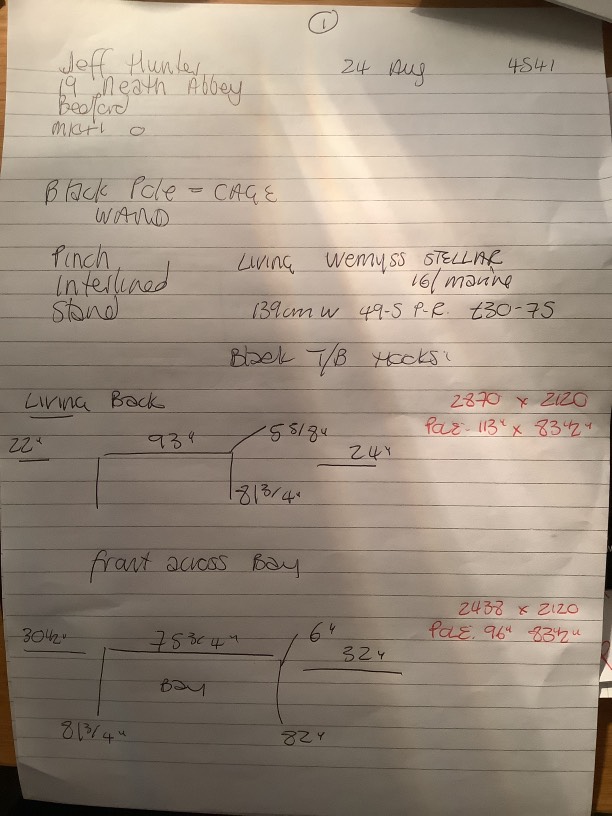 1
Jeff Hunter 24 Aug 4541
19 Neath Abbey
Bedford
Black Pole = CAGE
WAND
Pinch Living Wemyss STELLAR
Interlined 16/marine
Stand 139cm w 49-5 P-R. £30-75
Black T/B Hooks
Living Back
2870 x 2120
Pole 113" x 83½"
22" 93" 5 5/8" 24"
81 3/4"
front across Bay
2438 x 2120
Pole. 96" 83½"
30½" 75 3/4" 6" 32"
Bay
81 3/4" 82"